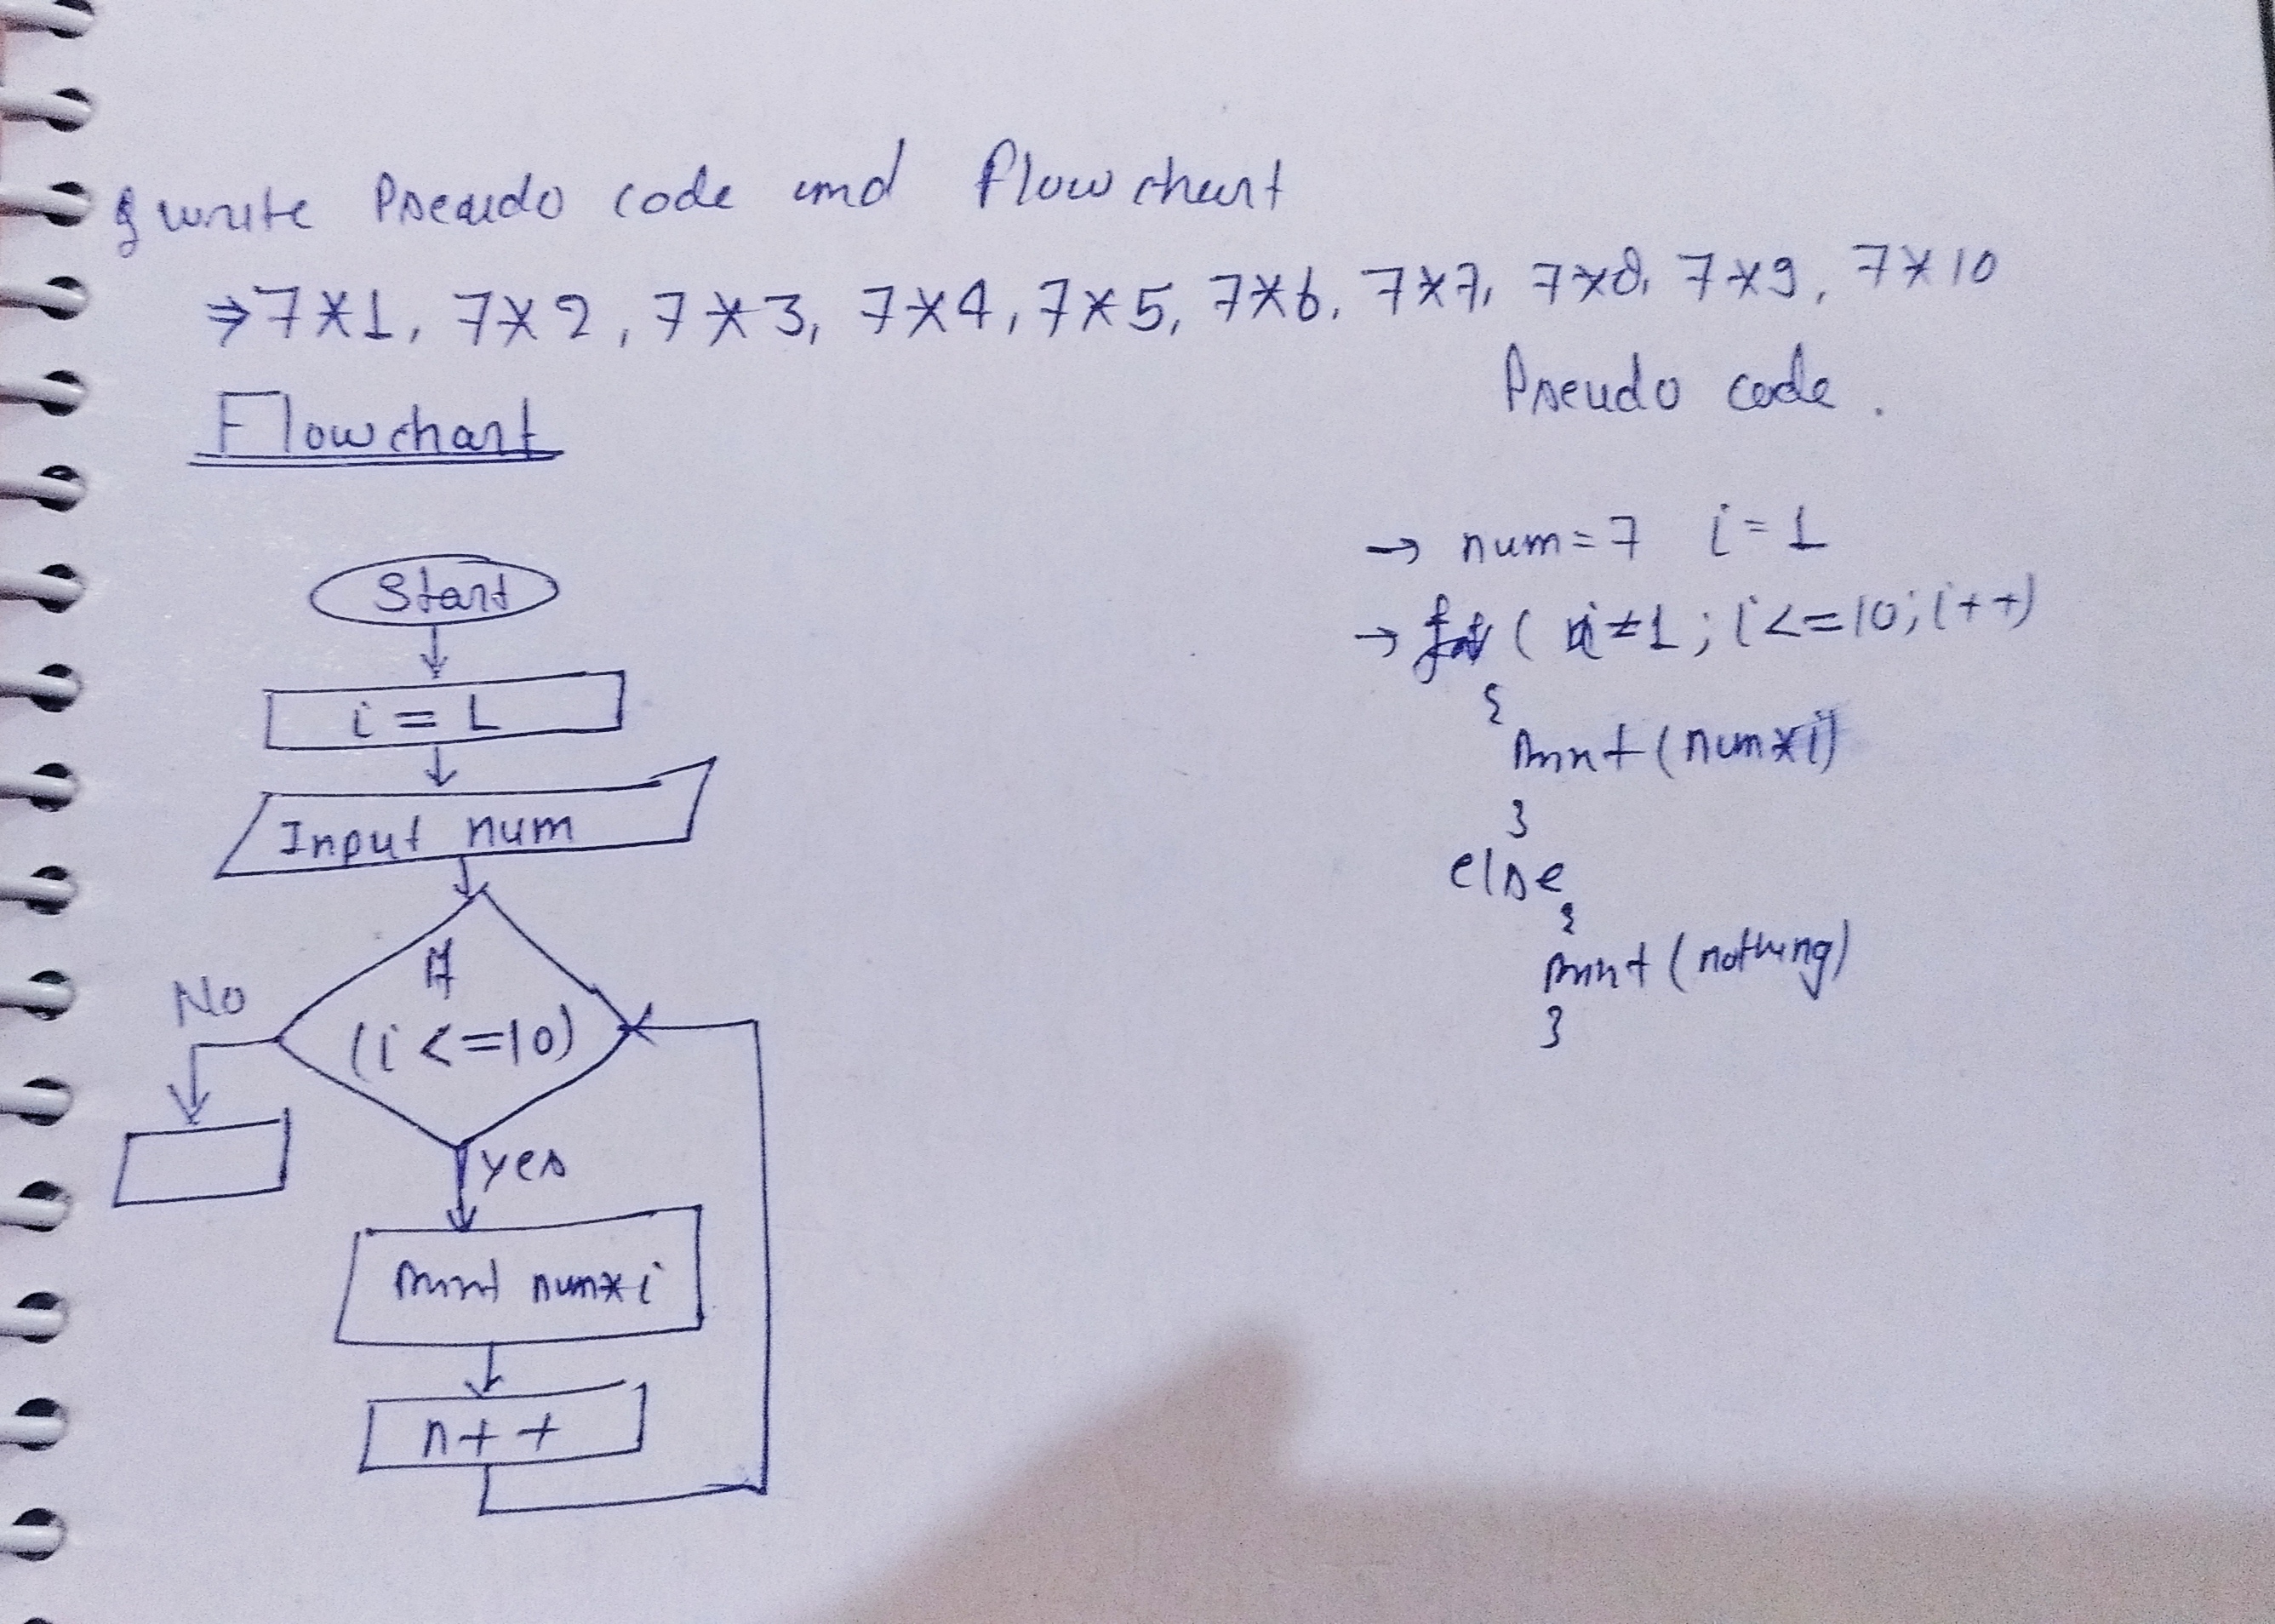 Q write Pseudo code and Flow chart
⇒ 7*1, 7*2, 7*3, 7*4, 7*5, 7*6, 7*7, 7*8, 7*9, 7*10
Flowchart
Start
i = 1
Input num
If
(i <= 10)
No
yes
Print num*i
n++
Pseudo code.
→ num = 7 i = 1
→ for ( i=1; i<=10; i++)
{
Print (num*i)
}
else
{
Print (nothing)
}